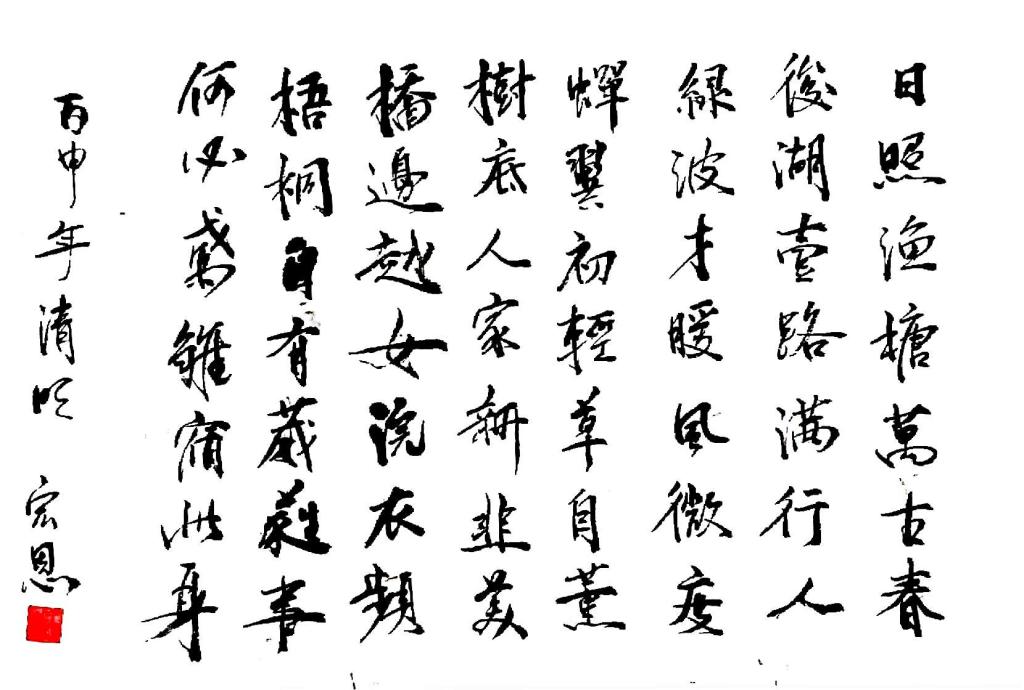 日照漁塘萬古春
後湖壹路滿行人
綠波才暖風微度
蟬翼初輕草自薰
樹底人家耕韭美
橋邊越女浣衣頻
梧桐自有葳蕤事
何必鳶雛宿此身
丙申年清明 宏恩